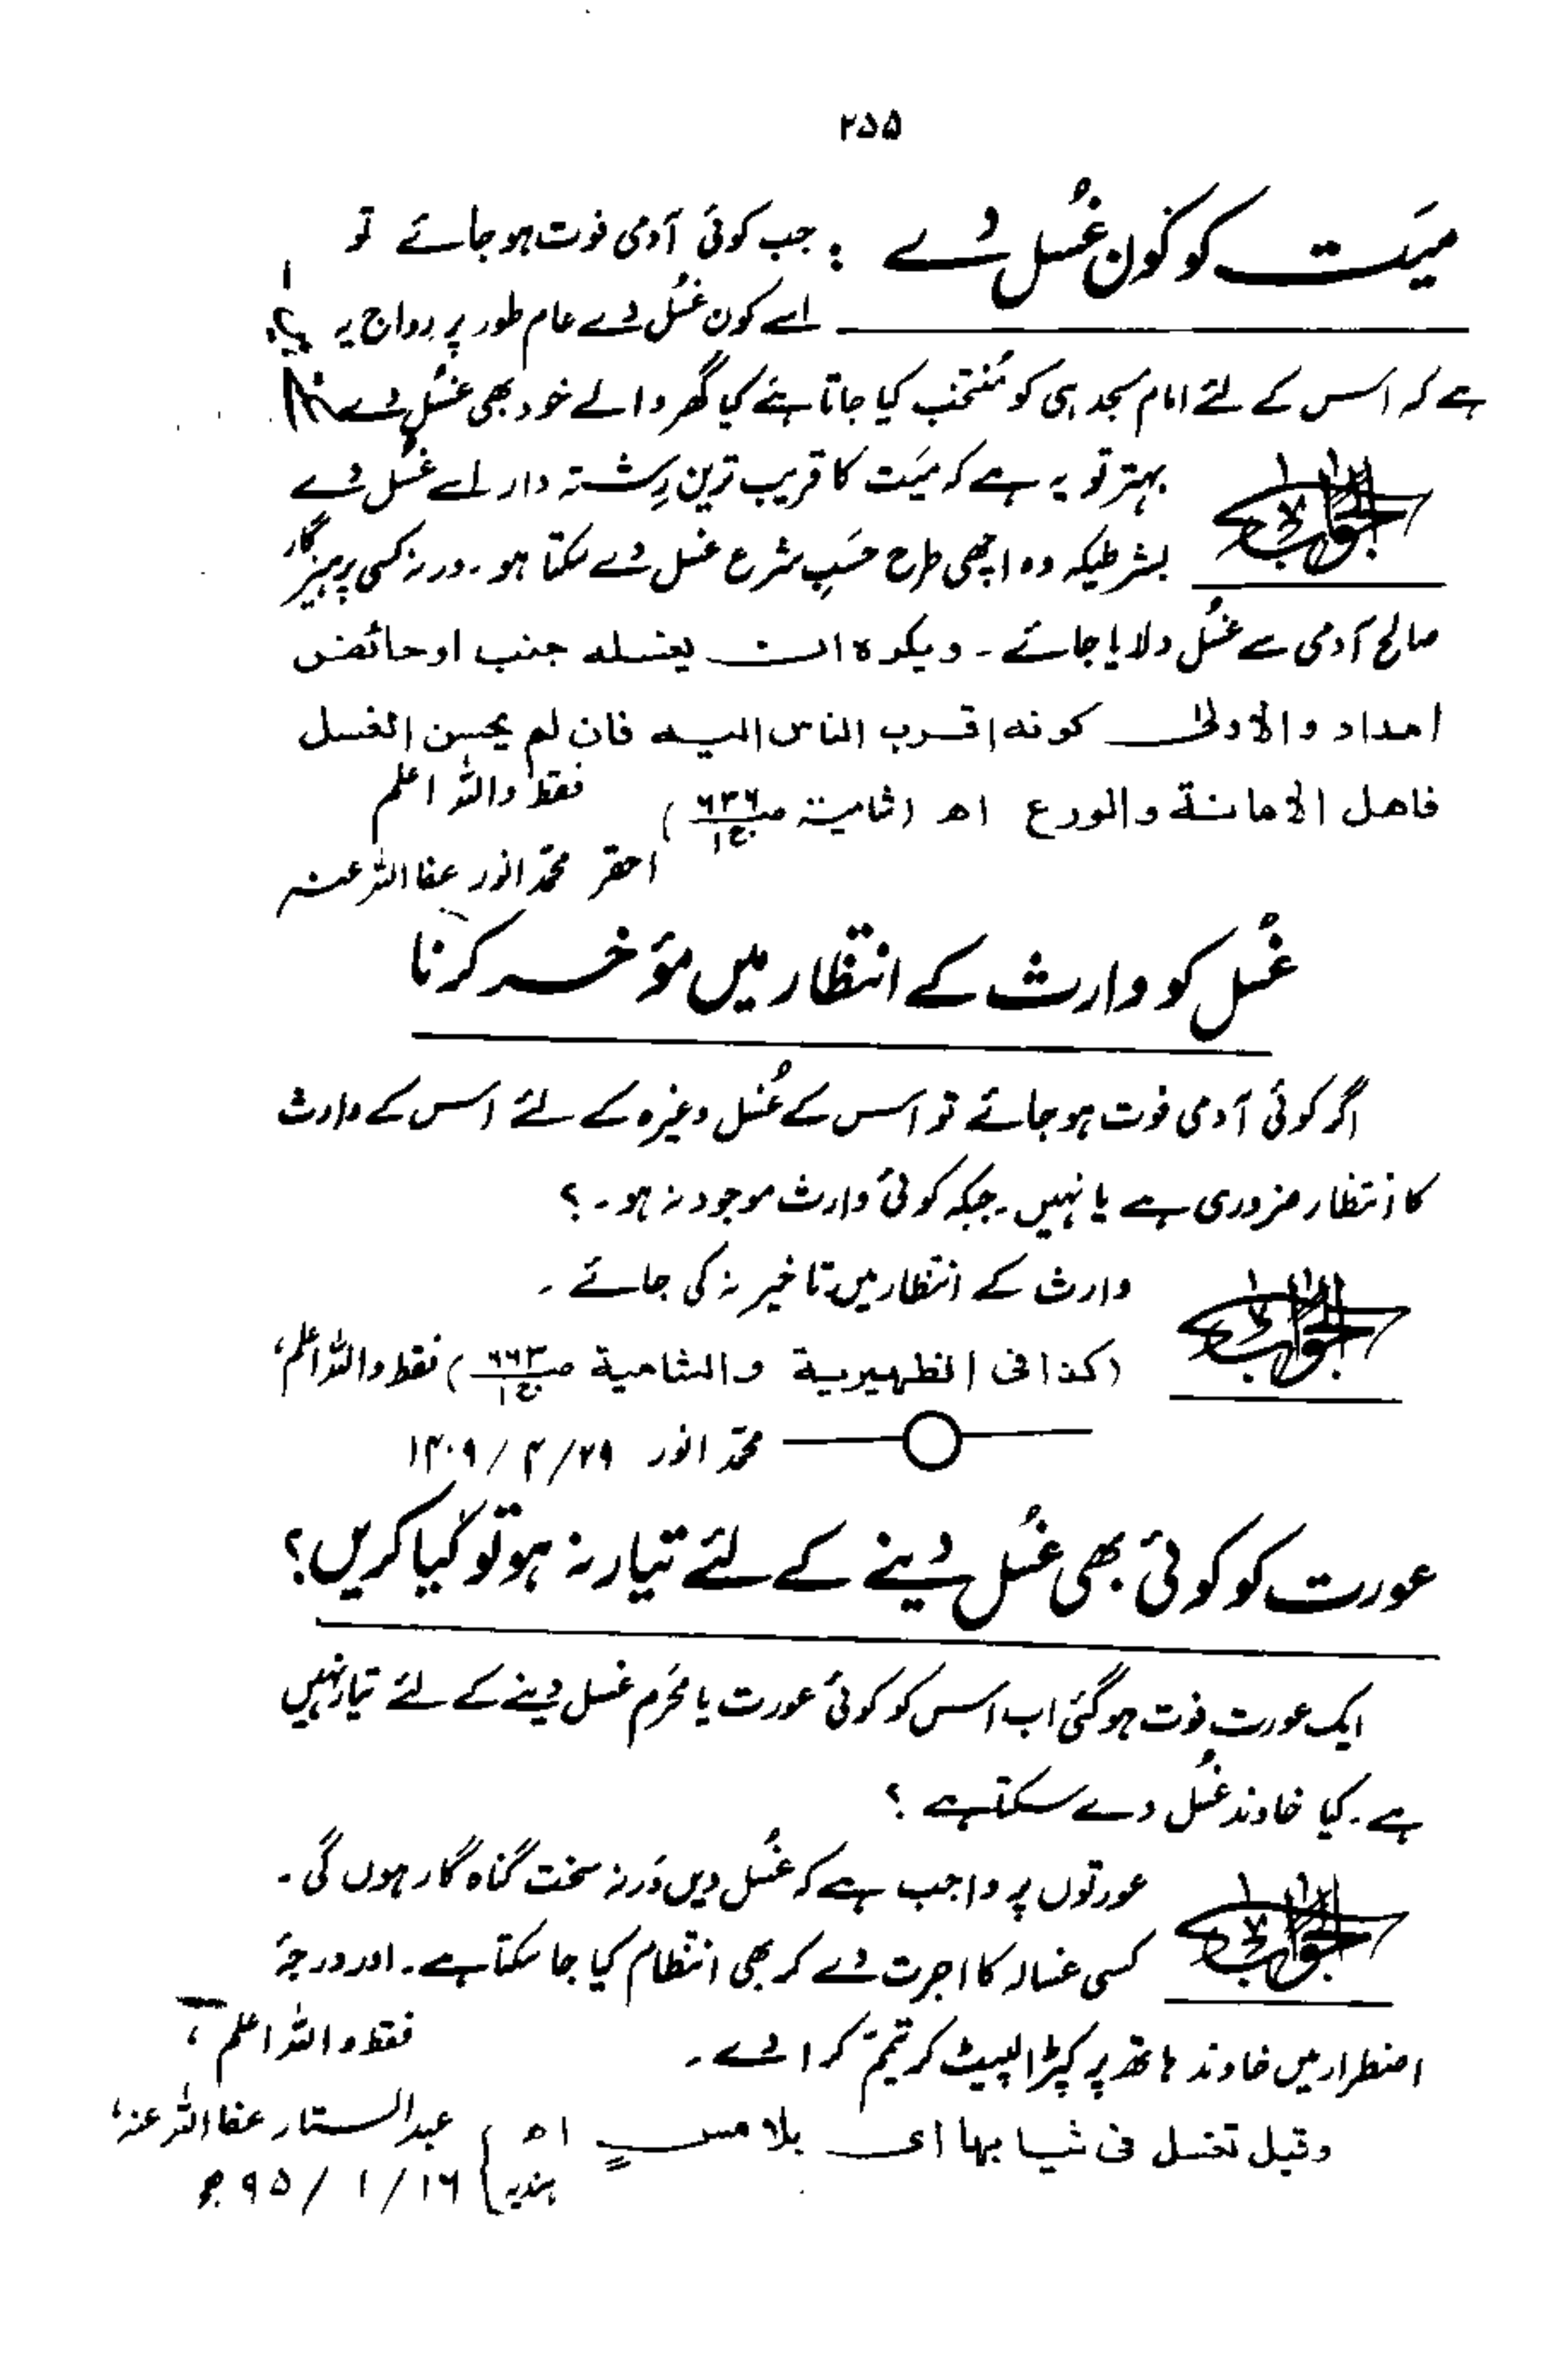 ۲۵۵
میّت کو کون غسل دے : جب کوئی آدمی فوت ہو جائے تو
اسے کون غسل دے عام طور پر رواج یہ
ہے کہ اس کے لئے امام مسجد ہی کو منتخب کیا جاتا ہے کیا گھر والے خود بھی غسل دے
الجواب بہتر تو یہ ہے کہ میّت کا قریب ترین رشتہ دار اسے غسل دے
بشرطیکہ وہ اچھی طرح حسَبِ شرع غسل دے سکتا ہو۔ ورنہ کسی پرہیزگار
صالح آدمی سے غسل دلایا جائے۔ ویکرہ ان یغسله جنب او حائض
امداد والاولیٰ کونه اقرب الناس الیه فان لم یحسن الغسل
فاهل الامانة والورع اھ (شامیة ص۶۳۶ ج۱) فقط واللہ اعلم
احقر محمّد انور عفا اللہ عنہ
غسل کو وارث کے انتظار میں مؤخر کرنا
اگر کوئی آدمی فوت ہو جائے تو اس کے غُسل وغیرہ کے لئے اس کے وارث
کا انتظار ضروری ہے یا نہیں۔ جبکہ کوئی وارث موجود نہ ہو۔ ؟
الجواب وارث کے انتظار میں تاخیر نہ کی جائے ۔
(کذا فی الظهیریة والشامیة ص۶۶۳ ج۱) فقط واللہ اعلم،
محمّد انور ۲۹/ ۴/ ۱۴۰۹
عورت کو کوئی بھی غسل دینے کے لئے تیار نہ ہو تو کیا کریں؟
ایک عورت فوت ہو گئی اب اس کو کوئی عورت یا محرَم غسل دینے کے لئے تیار نہیں
ہے۔ کیا خاوند غسل دے سکتا ہے ؟
الجواب عورتوں پر واجب ہے کہ غُسل دیں وَرنہ سخت گناہ گار ہوں گی۔
کسی غسالہ کا اجرت دے کر بھی انتظام کیا جا سکتا ہے۔ اور درجۂ
اضطرار میں خاوند ہاتھ پر کپڑا لپیٹ کر تیمّم کرا دے۔ فقط واللہ اعلم،
وقیل تغسل فی ثیابها ای بلا مسٍ اھ ہندیہ عبدالستار عفا اللہ عنہ،
۱۶/ ۱/ ۹۵ ھ